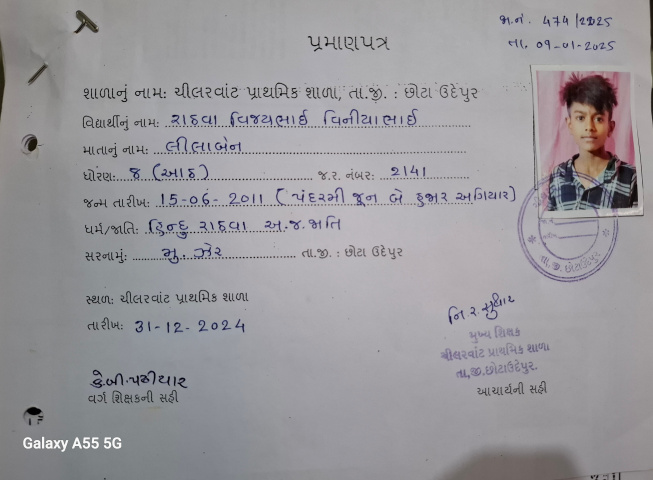 જા.નં. 474/2025
તા. 09-01-2025
પ્રમાણપત્ર
શાળાનું નામ: ચીલરવાંટ પ્રાથમિક શાળા, તા.જી. : છોટા ઉદેપુર
વિદ્યાર્થીનું નામ: રાઠવા વિજયભાઈ વિનીયાભાઈ
માતાનું નામ: લીલાબેન
ધોરણ: 8 (આઠ) જ.ર. નંબર: 2141
જન્મ તારીખ: 15-06-2011 (પંદરમી જૂન બે હજાર અગિયાર)
ધર્મ/જાતિ: હિન્દુ રાઠવા અ.જ.જાતિ
સરનામું: મુ. ઝેર તા.જી. : છોટા ઉદેપુર
તા. જી. છોટાઉદેપુર
સ્થળ: ચીલરવાંટ પ્રાથમિક શાળા
તારીખ: 31-12-2024
નિ. ર. સુથાર
મુખ્ય શિક્ષક
ચીલરવાંટ પ્રાથમિક શાળા
તા,જી.છોટાઉદેપુર.
આચાર્યની સહી
કે.બી.પઢીયાર
વર્ગ શિક્ષકની સહી
Galaxy A55 5G